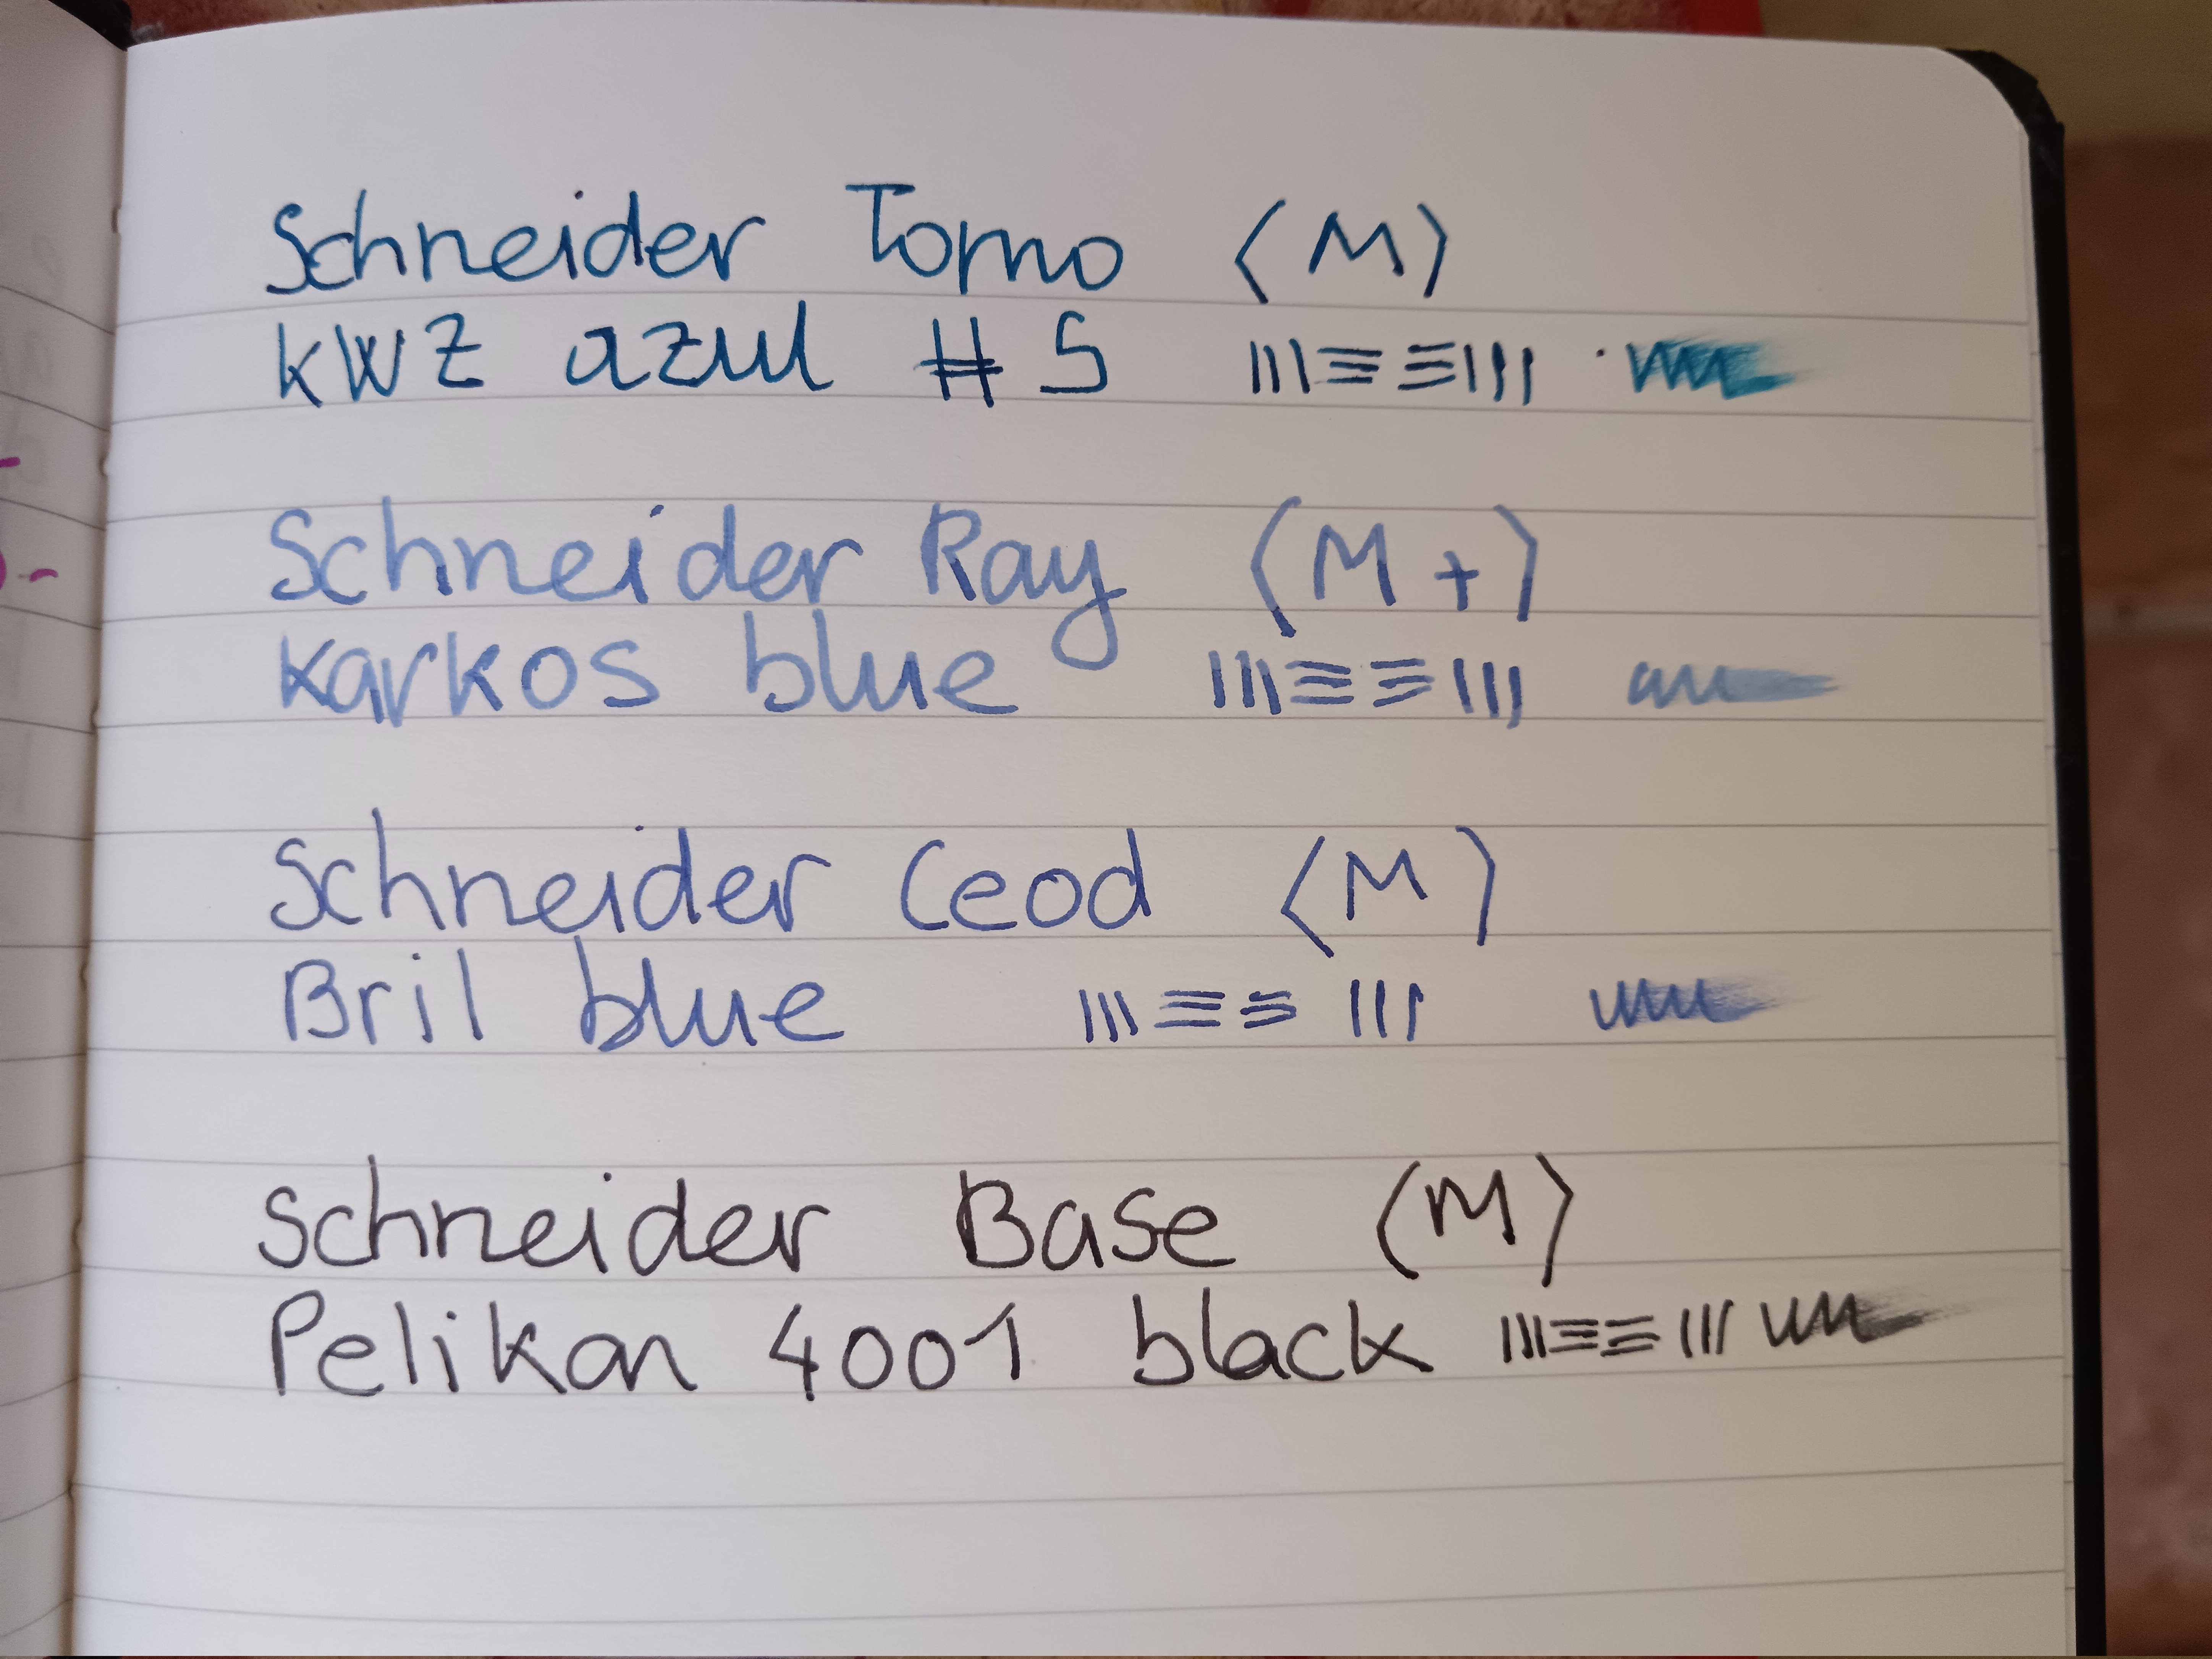 Schneider Tomo (M)
KWZ azul #5
Schneider Ray (M+)
Karkos blue
Schneider Ceod (M)
Bril blue
Schneider Base (M)
Pelikan 4001 black